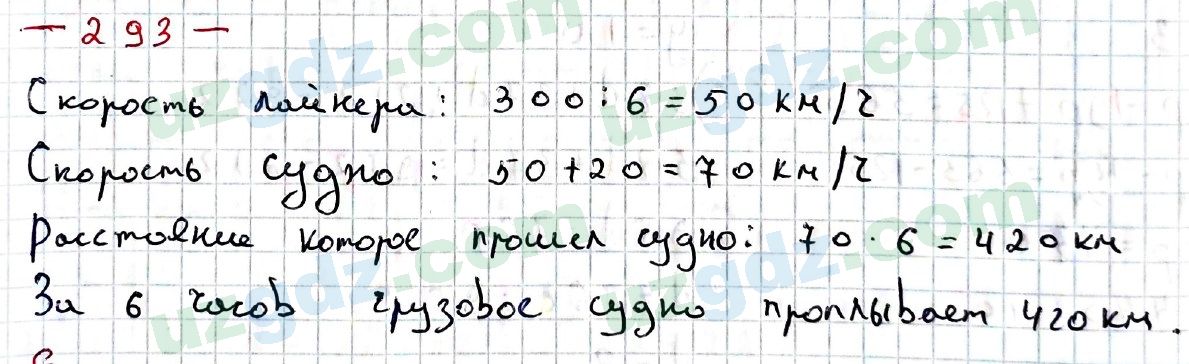 — 293 —
Скорость лайнера: 300:6=50 км/ч
Скорость судно: 50+20=70 км/ч
Расстояние которое прошел судно: 70·6=420 км
За 6 часов грузовое судно проплывает 420 км.
uzgdz.com
uzgdz.com
uzgdz.com
uzgdz.com